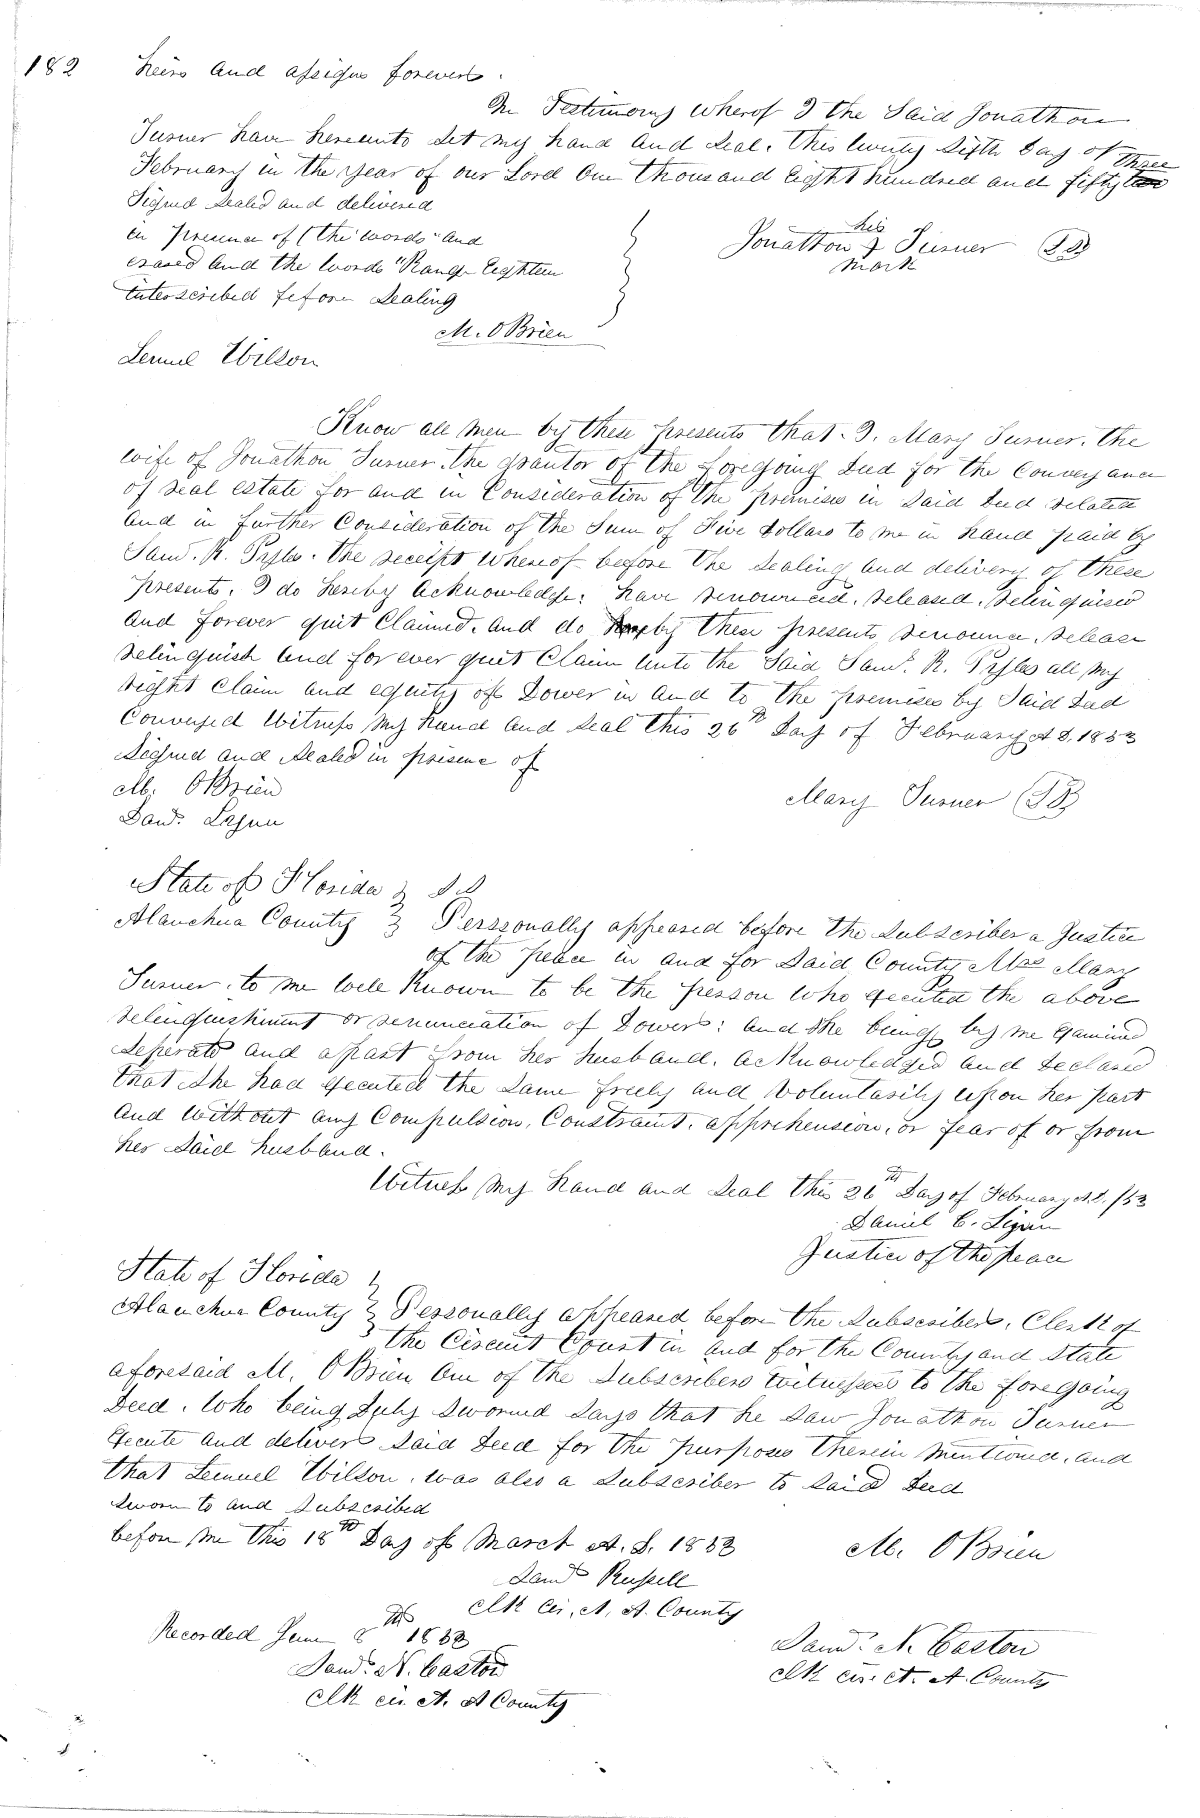 182 heirs and assigns forever.
In Testimony wherof I the Said Jonathon
Turner have hereunto Set my hand and Seal. this twenty Sixth Day of
February in the year of our Lord One thousand Eight hundred and fifty three
Signed Sealed and delivered
in presence of (the words "and
erased and the words "Range Eighteen
interscribed before Sealing
his
Jonathon X Turner
mark
M. OBrien
Lemuel Wilson
Know all men by these presents that. I. Mary Turner. the
wife of Jonathon Turner. the grantor of the foregoing Deed for the Conveyance
of real estate for and in Consideration of the premises in Said Deed related
and in further Consideration of the Sum of Five Dollars to me in hand paid by
Saml. R. Pyles. the receipt whereof before the Sealing and delivery of these
presents. I do hereby acknowledge. have renounced. released. relinquised
and forever quit Claimed. and do by these presents renounce. release
relinquish and forever quit Claim unto the Said Saml. R. Pyles all my
right Claim and equity of Dower in and to the premises by Said Deed
Conveyed Witness my hand and Seal this 26th Day of February A D. 1853
Signed and Sealed in presence of
M. OBrien
Mary Turner
State of Florida } S S
Alauchua County } Perssonally appeared before the Subscriber a Justice
of the peace in and for Said County Mrs Mary
Turner. to me well Known to be the person who executed the above
relinquishment or renunciation of Dower: and She being by me Examined
Seperate and apart from her husband. acknowledged and declared
that She had executed the Same freely and Voluntarily upon her part
and without any Compulsion. Constraint. apprehension. or fear of or from
her Said husband.
Witness my hand and Seal this 26th Day of February A.D. /53
Daniel C.
Justice of the peace
State of Florida }
Alauchua County } Personally appeared before the Subscriber. Clerk of
the Circuit Court in and for the County and State
aforesaid M. OBrien One of the Subscribers witnesses to the foregoing
Deed. Who being Duly Sworned Says that he Saw Jonathon Turner
Execute and deliver Said Deed for the purposes therein mentioned. and
that Lemuel Wilson. was also a Subscriber to Said Deed
Sworn to and Subscribed
before me this 18th Day of March A. D. 1853
M. OBrien
Saml Russell
Clk Cir. Ct. A. County
Recorded June 8th 1853
Saml. N. Caston
Clk cir Ct. A County
Saml. N. Caston
Clk cir. Ct. A. County